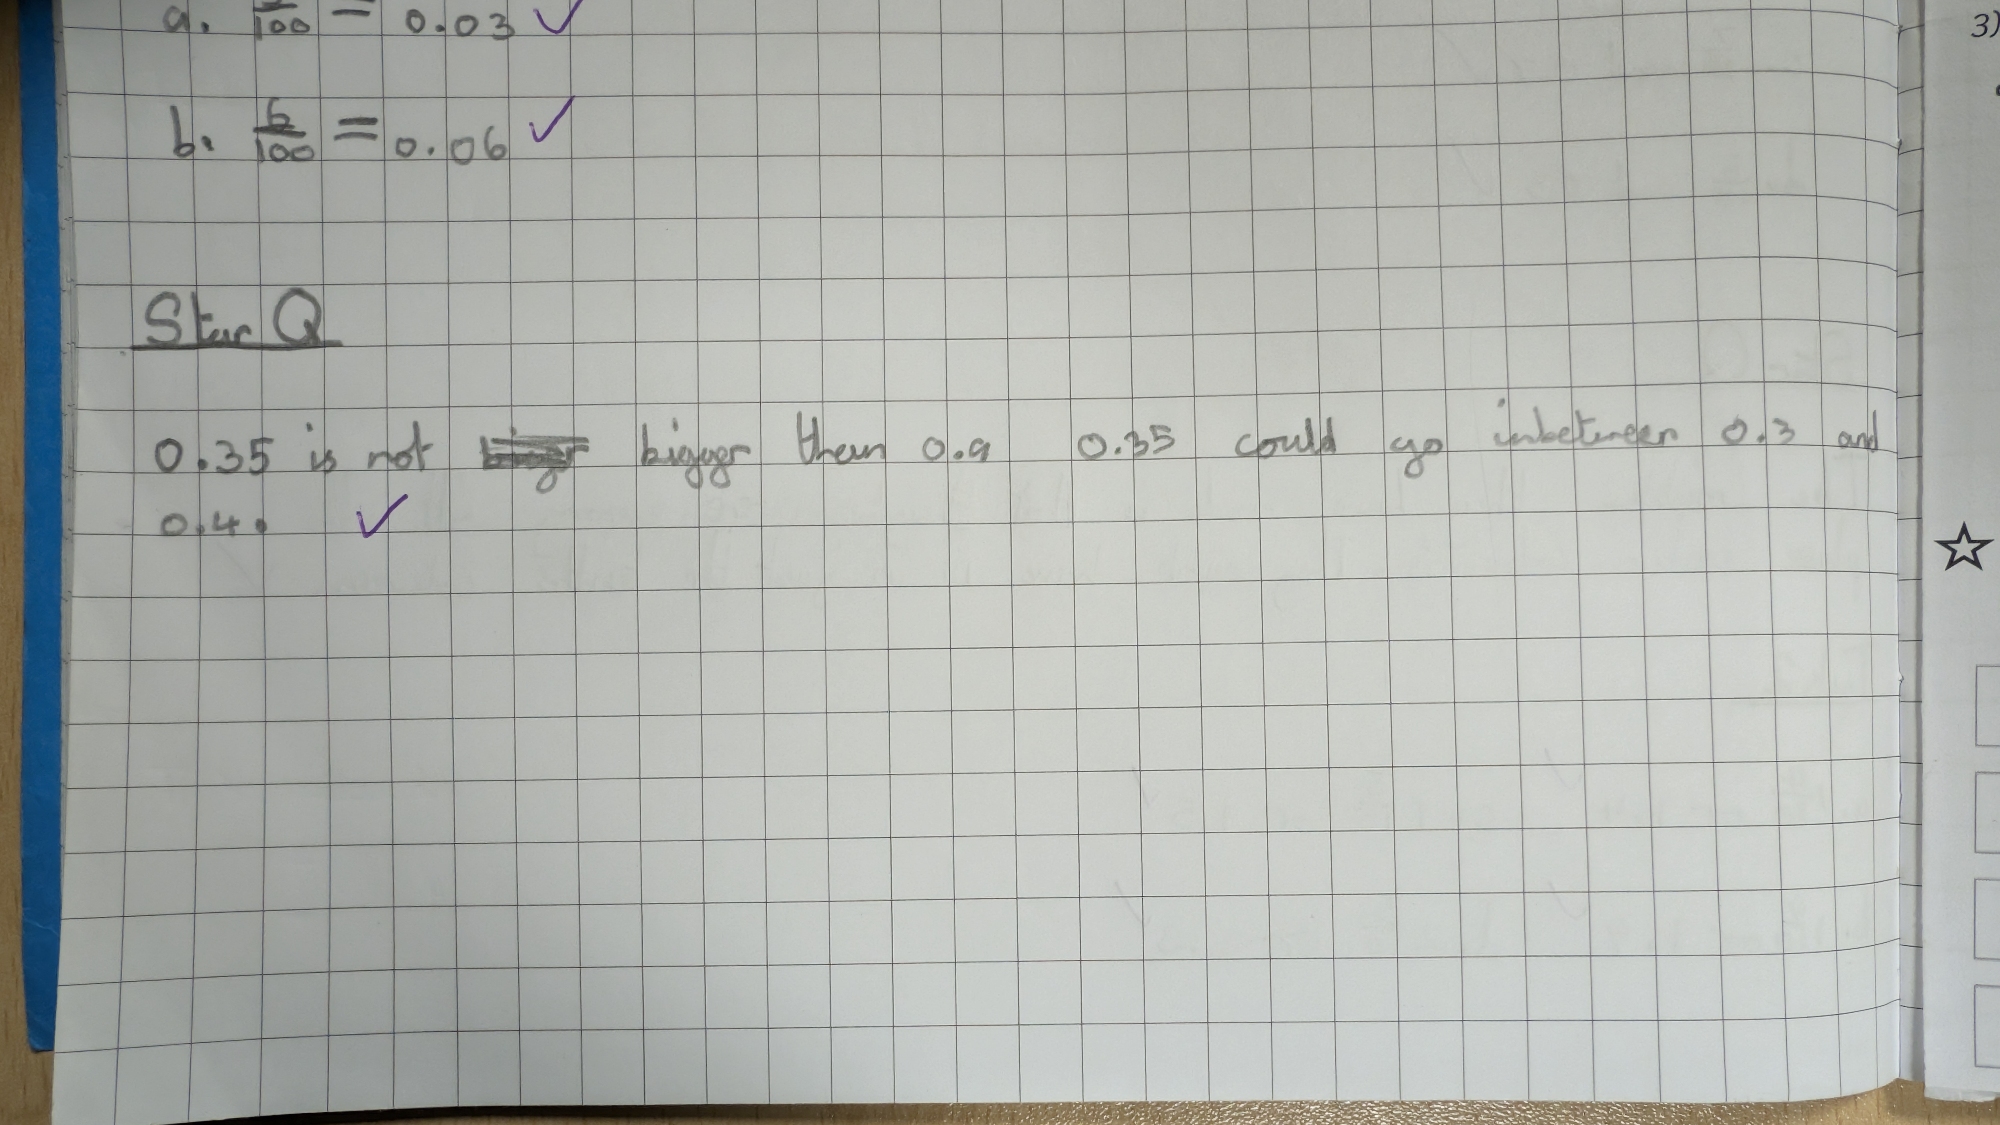 a. /100 = 0.03 ✓
b. 6/100 = 0.06 ✓
Star Q
0.35 is not bigger then 0.9 0.35 could go inbetween 0.3 and
0.4. ✓
3)